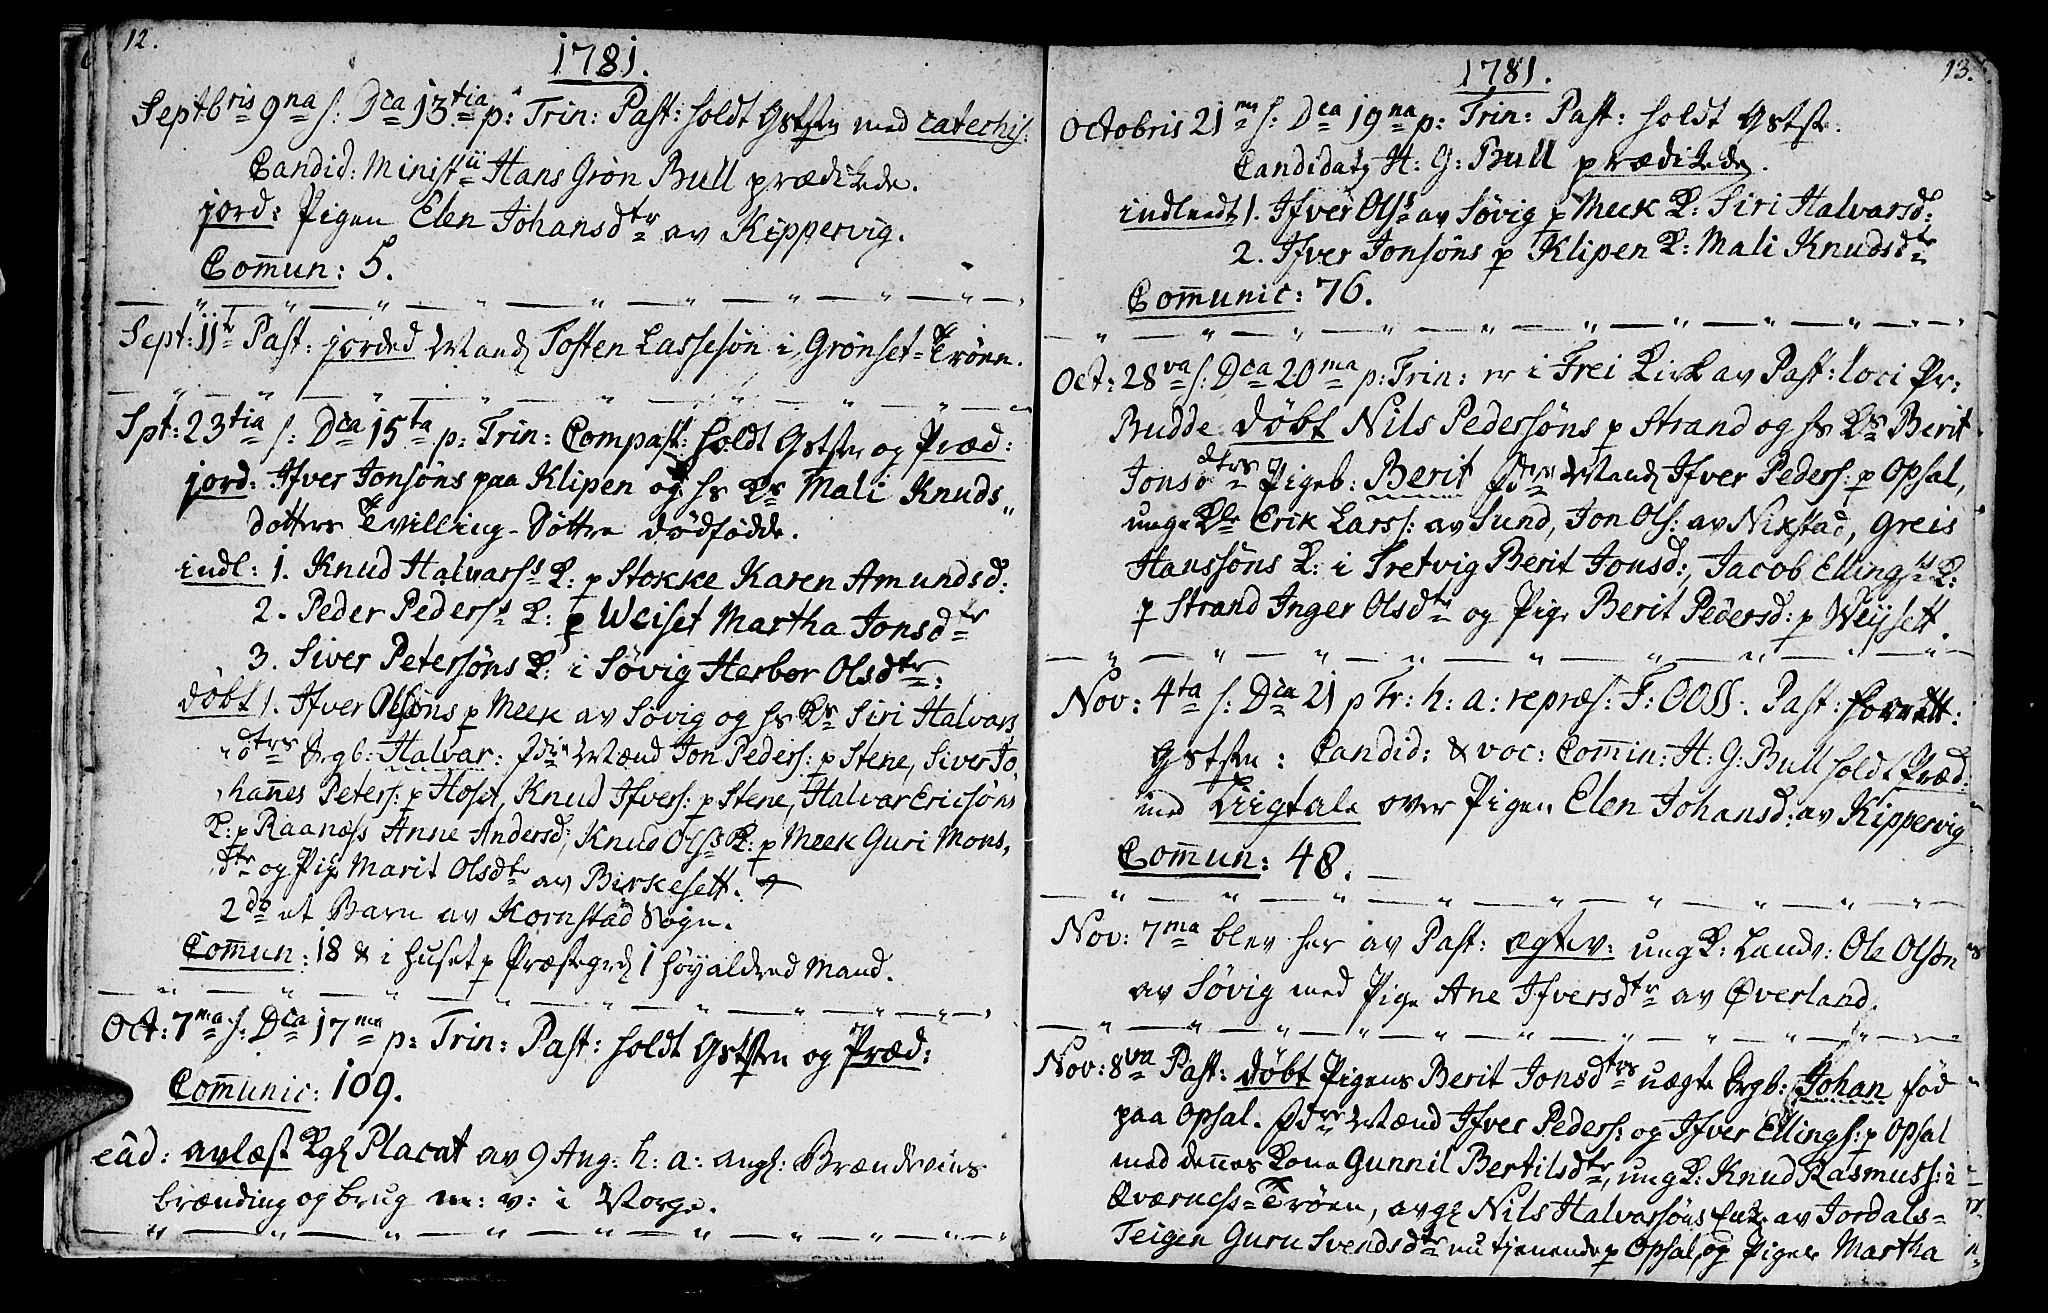 12.
1781.
Septbris 9na s: Dca 13tia p: Trin: Past: holdt Gststen med catechis:
Candid: Ministii Hans Grøn Bull prædikede.
jord: Pigen Elen Johansdtr av Kippervig.
Comun: 5.
Sept: 11te Past: jorded Mand Tosten Lassesøn i Grønset-Trøen.
Spt: 23tia s: Dca 15ta p: Trin: Compast: holdt Gststen og Præd:
jord: Ifver Jonsøns paa Klipen og hs Ks Mali Knuds„
dotters Tvilling-Døttre dødfødde.
indl: 1. Knud Halvarss K: p Stokke Karen Amundsd:
2. Peder Peders K: p Weiset Martha Jonsdtr
3. Siver Petersøns K: i Søvig Herbor Olsdtr:
døbt 1. Ifver Olsøns p Meek av Søvig og hs Ks Siri Halvars
dtrs Drgb: Halvar: Mænd Jon Peders: p Stene, Siver Jo,
hanes Peters: p Hoset, Knud Ifvers: p Stene, Halvar Ericsøns
K: p Raanæss Anne Andersd:, Knud Olss K: p Meek Guri Mons,
dtr og Pig Marit Olsdtr av Birkesett.
2do et Barn av Kornstad Sogn.
Comun: 18 & i huset p Præstegrd 1 høyaldred Mand.
Oct: 7ma s: Dca 17ma p: Trin: Past: holdt Gststen og Præd:
Comunic: 109.
ead: avlæst Kgl Placat av 9 Aug: h: a: angl: Brændeviins
brænding og brug m: v: i Norge.
13.
1781.
Octobris 21ma s: Dca 19na p: Trin: Past: holdt Gstste:
Candidat H: G: Bull prædikede.
indleedt 1. Ifver Olss av Søvig p Meek K: Siri Halvarsd:
2. Ifver Jonsøns p Klipen K: Mali Knudsdtr
Comunic: 76.
Oct: 28va s: Dca 20ma p: Trin: er i Frei Kirk av Past: loci Pr:
Budde døbt Nils Pedersøns p Strand og hs Ks Berit
Jonsdtrs Pigeb: Berit Mand Ifver Peders: p Opsal,
unge Erik Larss: av Sund, Jon Ols: av Nixstad, Greis
Hanssøns K: i Tretvig Berit Jonsd:, Jacob Ellings K:
p Strand Inger Olsdtr og Pig Berit Pedersd: p Weysett.
Nov: 4ta s: Dca 21 p Tr: h: a: repræs: F: OOSS. Past: forrett:
Gststen: Candid: & voc: Comin: H: G: Bull holdt Præd:
med Liigtale over Pigen Elen Johansd: av Kippervig
Comun: 48.
Nov: 7ma blev her av Past: ægtev: ung K: Landv: Ole Olsøn
av Søvig med Pige Ane Ifversdtr av Øverland.
Nov: 8va Past: døbt Pigens Berit Jonsdtrs uægte Drgb: Johan fød
paa Opsal. Mænd Ifver Peders: og Ifver Ellings: p Opsal
med dennes Kone Gunnil Bertilsdtr, ung K: Knud Rasmuss: i
Qværness-Trøen, avg Nils Halvarsøns Enke av Jordals-
Teigen Guru Svendsdtr nu tjenende p Opsal, og Pigen Martha